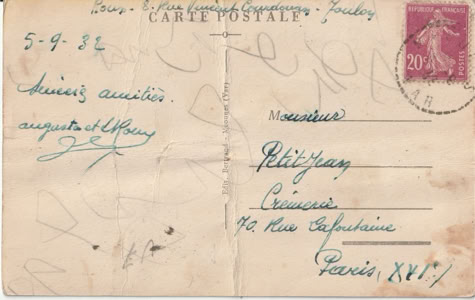 Roux - 8 - Rue Vincent Courdouan - Toulon
CARTE POSTALE
5-9-32
Sincères amitiés.
augusta et
Edit. Bertrand - Néoules (Var)
RÉPUBLIQUE FRANÇAISE
20c
POSTES
Monsieur
Petit Jean
Crèmerie
70, Rue Lafontaine
Paris, XVI